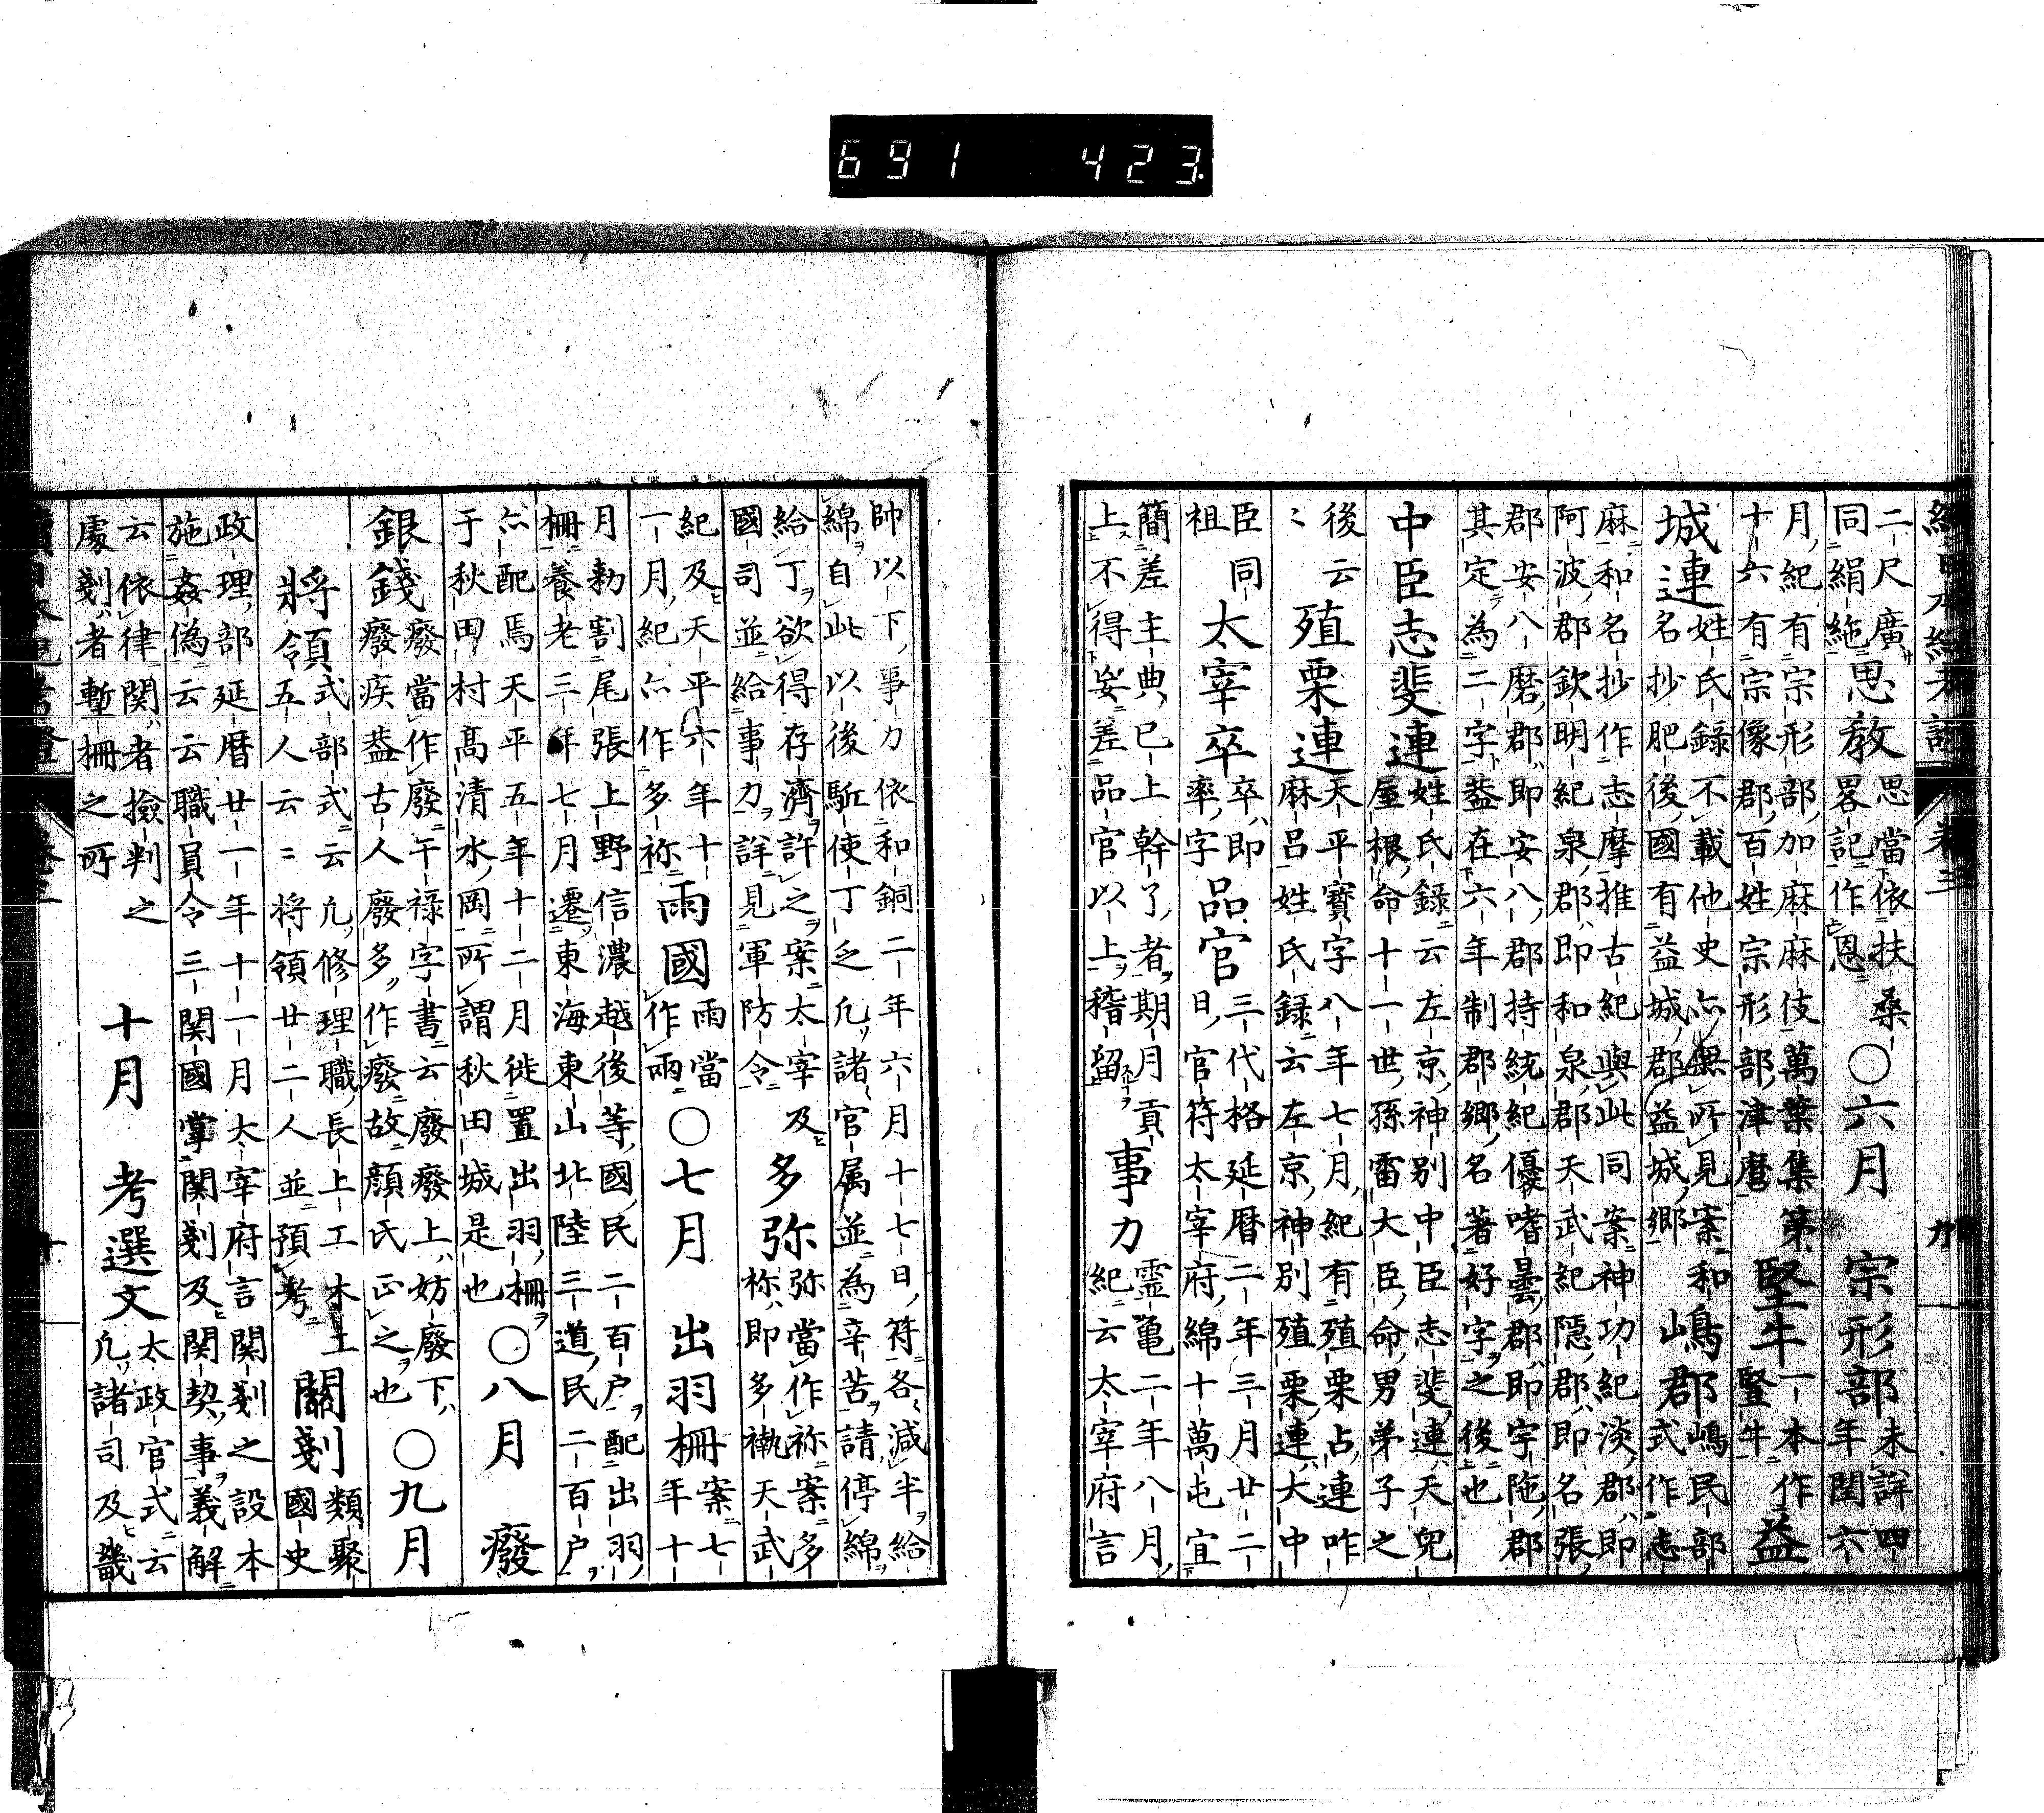 691 423
二尺廣 思教 思當依扶桑 ○六月 宗形部 未詳四
同絹絁 畧記作恩 年閏六
月紀有宗形部加麻麻伎萬葉集第 堅牛 一本作 益
十六有宗像郡百姓宗形部津麿 豎牛
城連 姓氏録不載他史亦無所見案和 嶋郡 嶋民部
名抄肥後國有益城郡益城郷 式作志
麻和名抄作志摩推古紀與此同案神功紀淡郡即
阿波郡欽明紀泉郡即和泉郡天武紀隱郡即名張
郡安八磨郡即安八郡持統紀優嗜曇郡即宇陁郡
其定為二字葢在六年制郡郷名著好字之後也
中臣志斐連 姓氏録云左京神別中臣志斐連天兒
屋根命十一世孫雷大臣命男弟子之
後云 殖栗連 天平寶字八年七月紀有殖栗占連咋
〻 麻呂姓氏録云左京神別殖栗連大中
臣同 太宰卒 卒即 品官 三代格延暦二年三月廿二
祖 率字 日官符太宰府綿十萬屯宜
簡差主典已上幹了者期月貢 事力 霊亀二年八月
上不得妄差品官以上稽留 紀云太宰府言
帥以下事力依和銅二年六月十七日符各減半給
綿自此以後駈使丁乏凡諸官属並為辛苦請停綿
給丁欲得存濟許之案太宰及 多弥 弥當作祢案多
國司並給事力詳見軍防令 祢即多褹天武
紀及天平六年十 雨國 雨當 ○七月 出羽柵 案七
一月紀亦作多祢 作兩 年十
月勅割尾張上野信濃越後等國民二百户配出羽
柵養老三年七月遷東海東山北陸三道民二百户
亦配焉天平五年十二月徙置出羽柵 ○八月 癈
于秋田村高清水岡所謂秋田城是也
銀錢 癈當作廢干禄字書云廢癈上妨廢下 ○九月
癈疾葢古人廢多作癈故顔氏正之也
將領 式部式云凡修理職長上工木工 關剗 類聚
五人云〻将領廿二人並預考 國史
政理部延暦廿一年十一月太宰府言関剗之設本
施姦偽云云職員令三関國掌関剗及関契事義解
云依律関者撿判之 十月 考選文 太政官式云
處剗者塹柵之所 凡諸司及畿